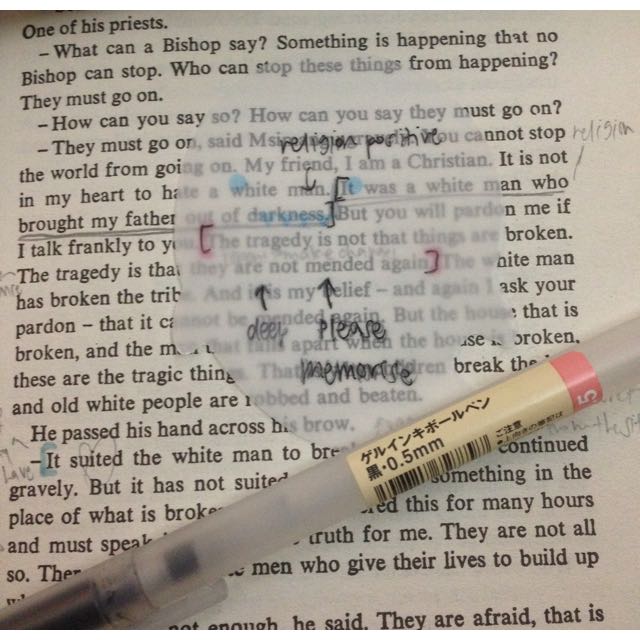 One of his priests.
– What can a Bishop say? Something is happening that no
Bishop can stop. Who can stop these things from happening?
They must go on.
– How can you say so? How can you say they must go on?
– They must go on, said Msi you cannot stop
religion positive
religion
the world from going on. My friend, I am a Christian. It is not
in my heart to hate a white man. [It was a white man who
brought my father out of darkness.] But you will pardon me if
I talk frankly to you. [The tragedy is not that things are broken.
The tragedy is that they are not mended again.] The white man
has broken the trib And it is my belief – and again I ask your
pardon – that it cannot be mended again. But the house that is
deep please
memorise
broken, and the m that falls apart when the house is broken,
these are the tragic things. That children break the
and old white people are robbed and beaten.
He passed his hand across his brow.
– It suited the white man to break continued
gravely. But it has not suited something in the
place of what is broken. this for many hours
and must speak truth for me. They are not all
so. There men who give their lives to build up
not enough, he said. They are afraid, that is
ゲルインキボールペン
黒・0.5mm
ご注意
5